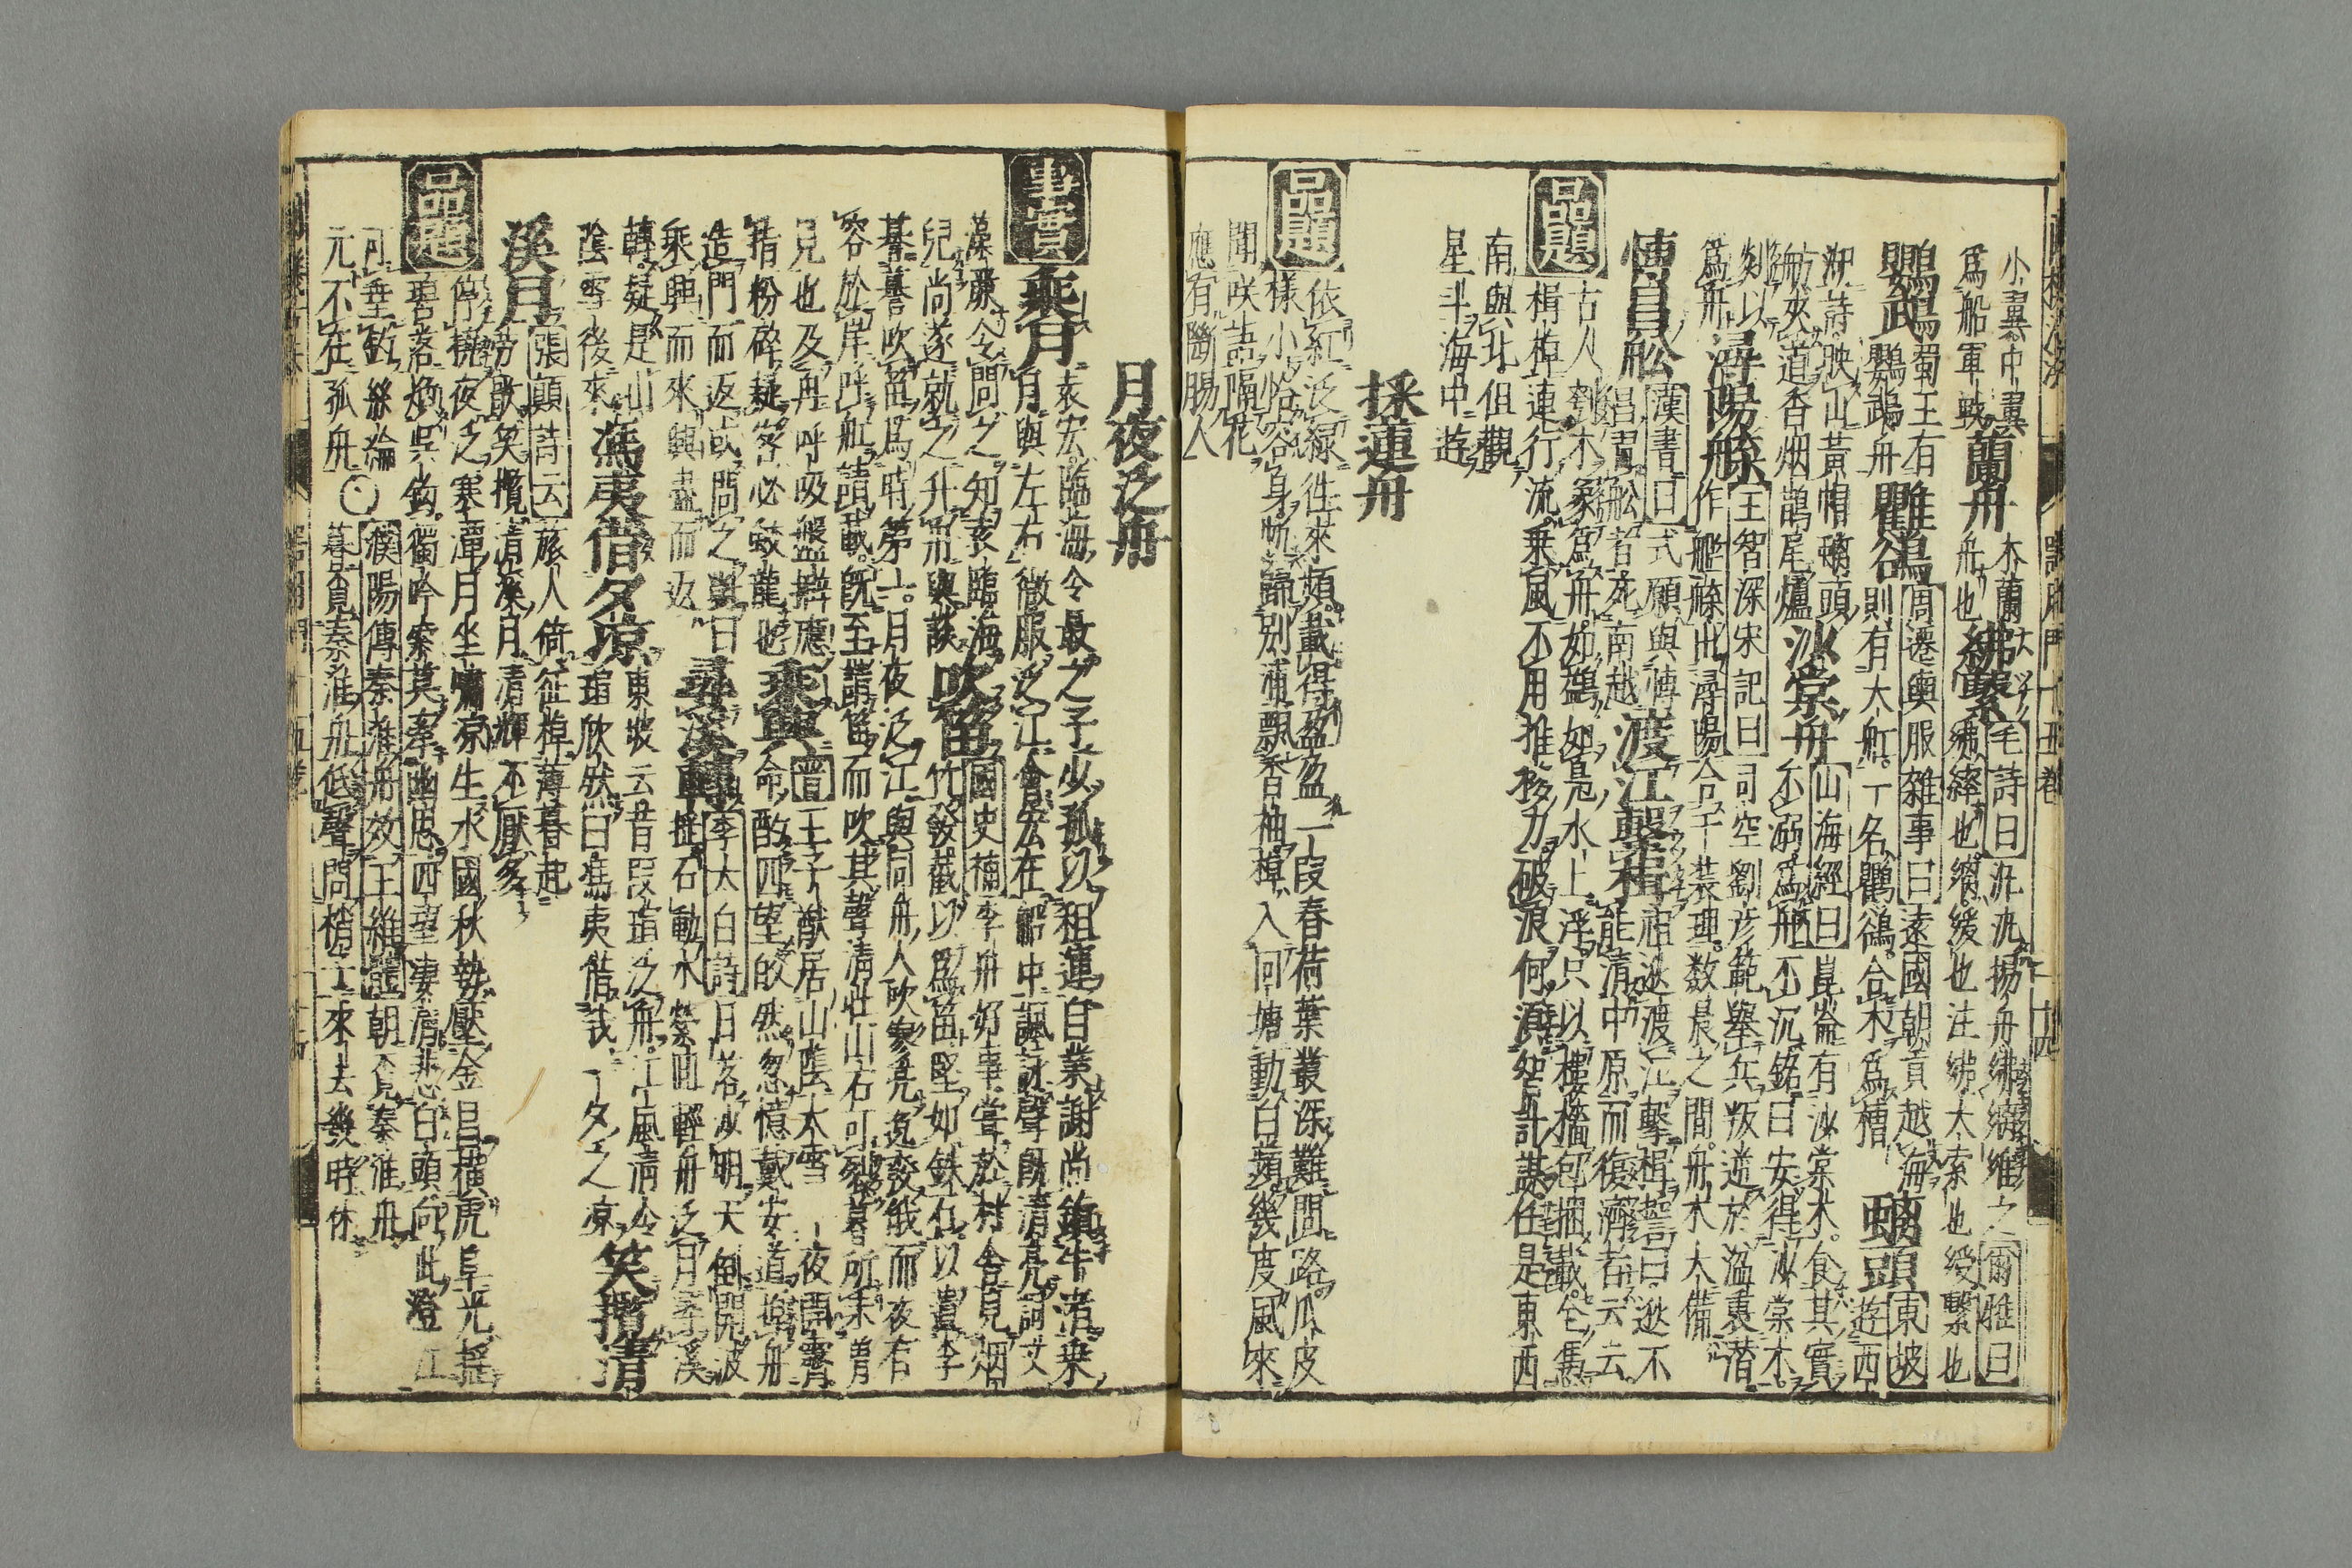 小翼中翼
為船軍戰 蘭舟 木蘭舟也 紼繫 毛詩曰汎汎揚舟紼纚維之爾雅曰
紼縴也纚綏也注紼大索也綬繫也
鸚武 蜀王有鸚鵡舟 鸛鵒 周遷輿服雜事曰遠國朝貢越海
則有大舡一名鸛鵒合木為槽 螭頭 東坡遊西
湖詩映山黃帽螭頭
舫夾道香烟鵲尾爐 沙棠舟 山海經曰崑崙有沙棠木食其實
不溺為船不沉銘曰安得沙棠木
剡以為舟 潯陽艅 王智深宋記曰司空劉彥範舉兵叛逆於湓裏潜
作艦艅此潯陽合千裝理数晨之間舟木大備
漢書曰式願與博
昌習舩者死南越 渡江擊楫 祖逖渡江擊楫誓曰逖不
能清中原而復濟者云云
品題 古人刳木象為舟如鷁如鳧水上浮只以樓檣包捆載
楫棹連行流乗風不用推移力破浪何須紿計謀任是東西
南與北但觀
星斗海中遊
採蓮舟
品題 依紅泛緑徃來頻載得盈盈一段春荷葉叢深難問路瓜皮
樣小恰容身帆歸別浦飄香袖棹入回塘動白蘋幾度風來
聞咲語隔花
應有斷膓人
月夜泛舟
事實 乘月 袁宏臨海令最之子少孤以租運自業謝尚鎮牛渚乗
月與左右微服泛江會宏在船中諷詠聲既清亮詞文
藻麗令問之知袁臨海
兒尚遂就之升舟與談 吹笛 國史補李舟好事嘗於村舍見烟
竹發截以為笛堅如鉄石以遺李
暮暮吹笛為時第一月夜泛江與同舟人吹寥亮逸發俄而夜有
客於岸呼舡請載既至請笛而吹其聲清壯山石可裂暮所未曽
見也及再呼吸盤擗應
指粉碎疑客必蛟龍也 乘興 晋王子猷居山隂木雪一夜開霽
命酌四望皎然忽憶戴安道掉舟
造門而返或問之對曰
乘興而來興盡而返 尋溪轉 李太白詩曰落沙明天倒開波
揺石動水縈迴輕舟泛月尋溪
轉疑是山
隂雪後來 馮夷借夕凉 東坡云昔段瑄之舟江風清冷
瑄欣然曰馮夷借我一夕之凉 笑攬清
溪月 張顛詩云旅人倚征棹薄暮起
勞歌笑攬清溪月清輝不厭多
品題 停橈夜泛寒潭月坐嘯凉生水國秋勢壓金昌橫虎阜光揺
碧落煥吳鈎獨吟索莫牽幽思四望凄清悲白頭向此澄江
可垂釣絲綸
元不在孤舟 濮陽傳秦淮舟效王維體朝見秦淮舟
暮見秦淮舟低聲問梢工來去幾時休